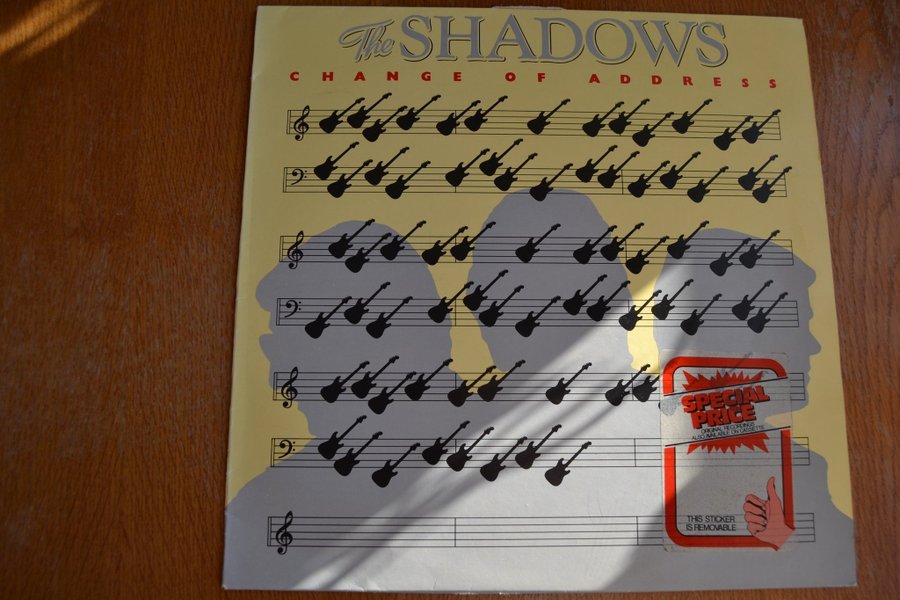 The SHADOWS
CHANGE OF ADDRESS
SPECIAL
PRICE
ORIGINAL RECORDINGS
ALSO AVAILABLE ON CASSETTE
THIS STICKER
IS REMOVABLE